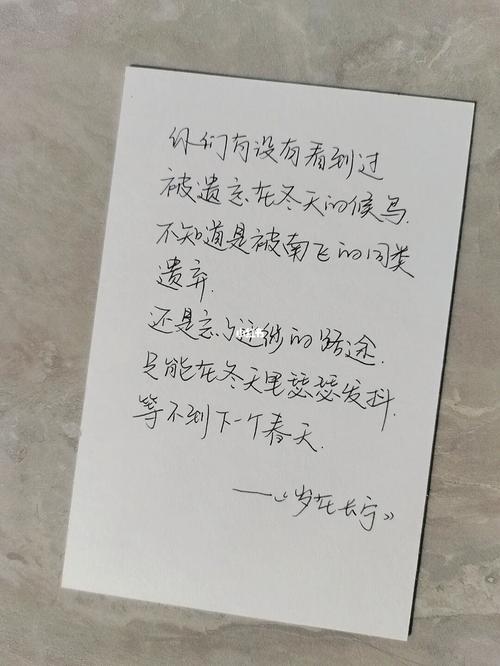 你们有没有看到过
被遗忘在冬天的候鸟.
不知道是被南飞的同类
遗弃.
还是忘了迁徙的路途.
只能在冬天里瑟瑟发抖.
等不到下一个春天.
——《岁在长宁》